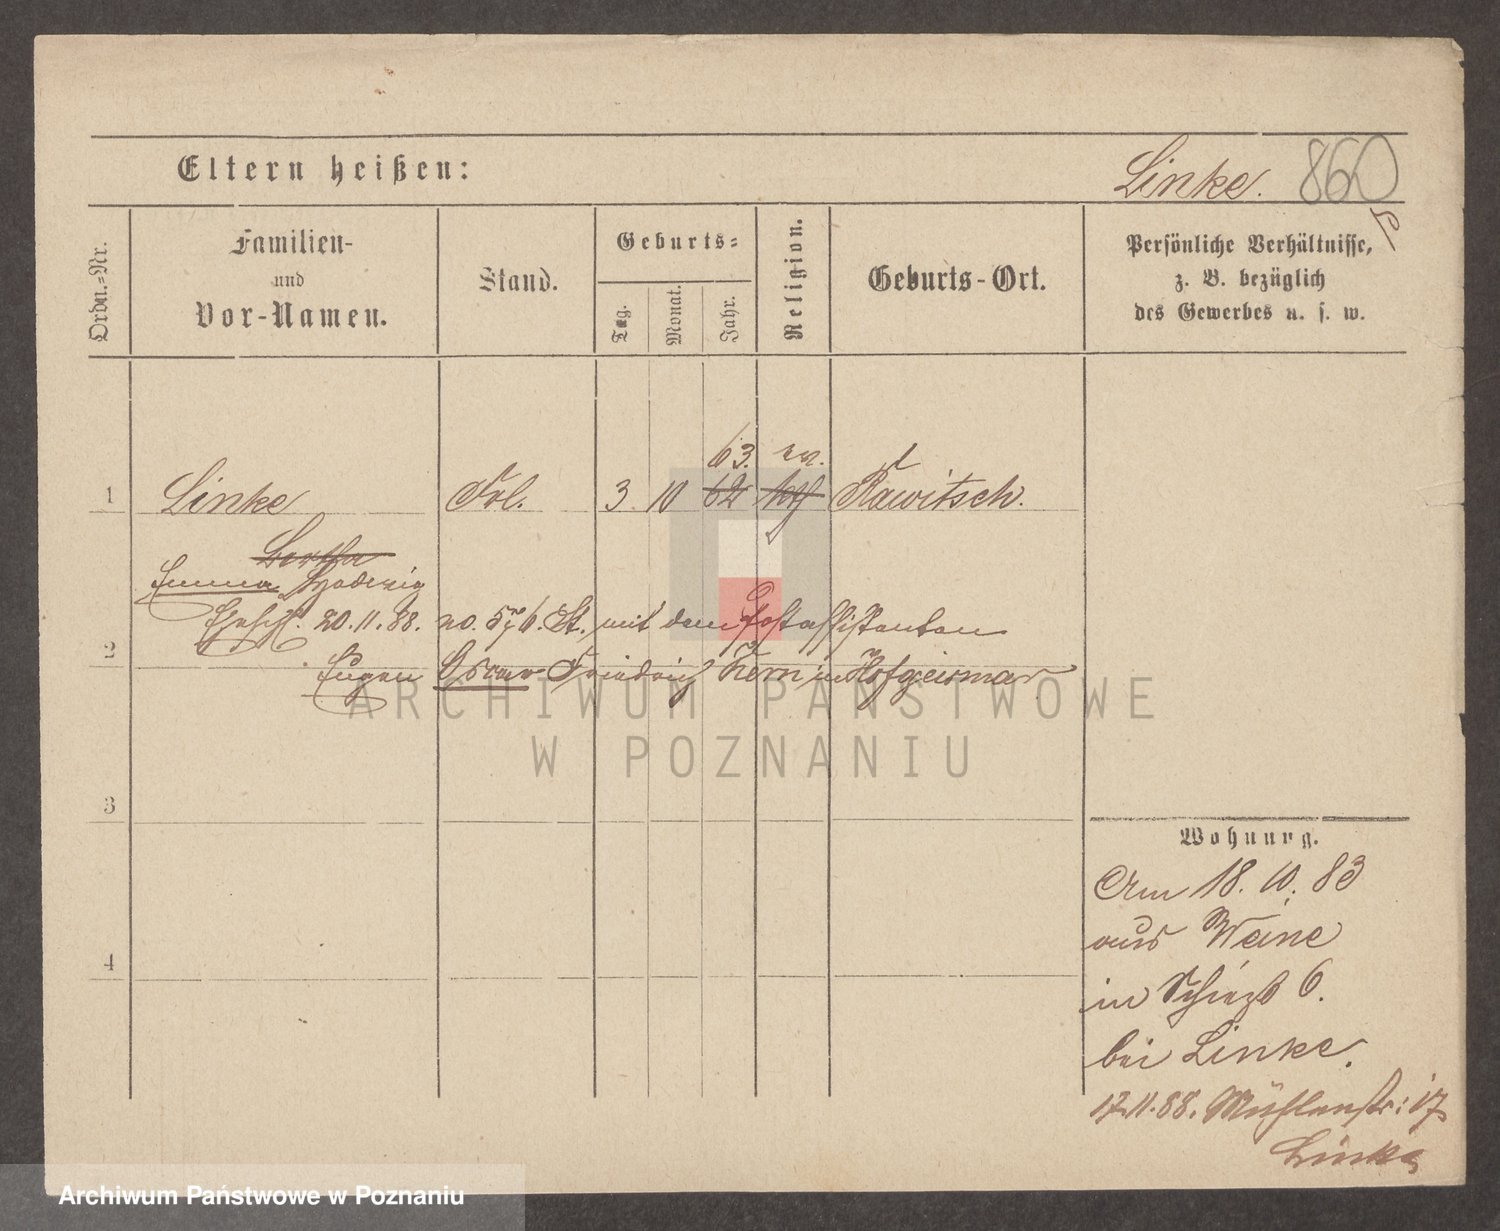 Eltern heißen:
Linke. 860
Ordn.=Nr.
Familien-
und
Vor-Namen.
Stand.
Geburts=
Tag.
Monat.
Jahr.
Religion.
Geburts-Ort.
Persönliche Verhältnisse,
z. B. bezüglich
des Gewerbes u. s. w.
63. ev.
1 Linke Frl. 3 10 62 kth Rawitsch.
Bertha
Emma Hedwig
Ehesch. 20.11.88. no. St. mit dem Postassistenten
2
Eugen Oscar Friedrich Kern in Hofgeismar
ARCHIWUM PAŃSTWOWE
W POZNANIU
3
Wohnung.
Am 18. 10. 83
aus Weine
in Schießb 6.
bei Linke.
4
17.11.88. Mühlenstr: 17
Linke
Archiwum Państwowe w Poznaniu